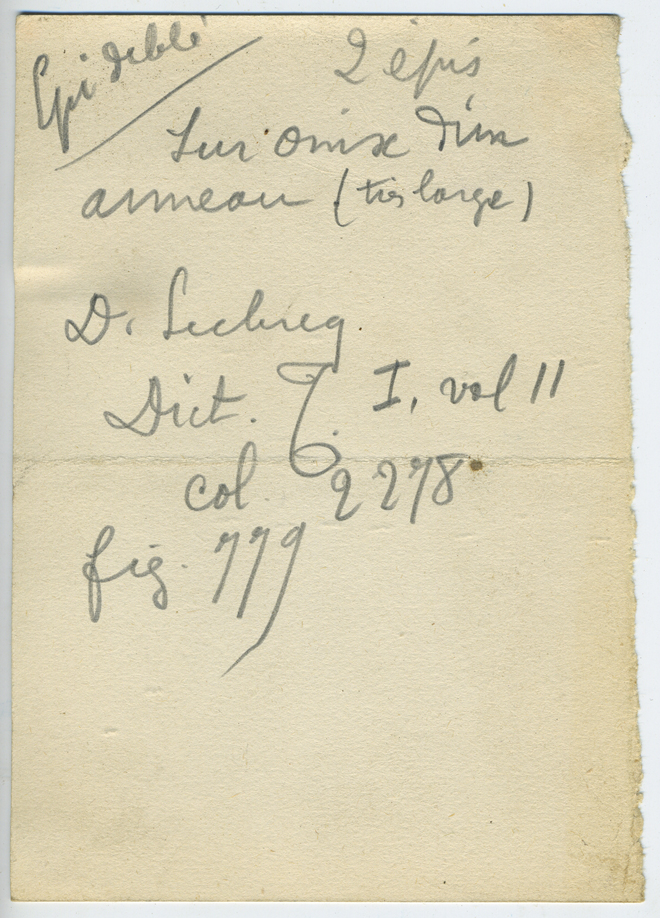 Epi de blé
2 épis
sur onix d'un
anneau (très large)
D. Leclercq
Dict. T. I, vol II
col. 2278
fig. 779